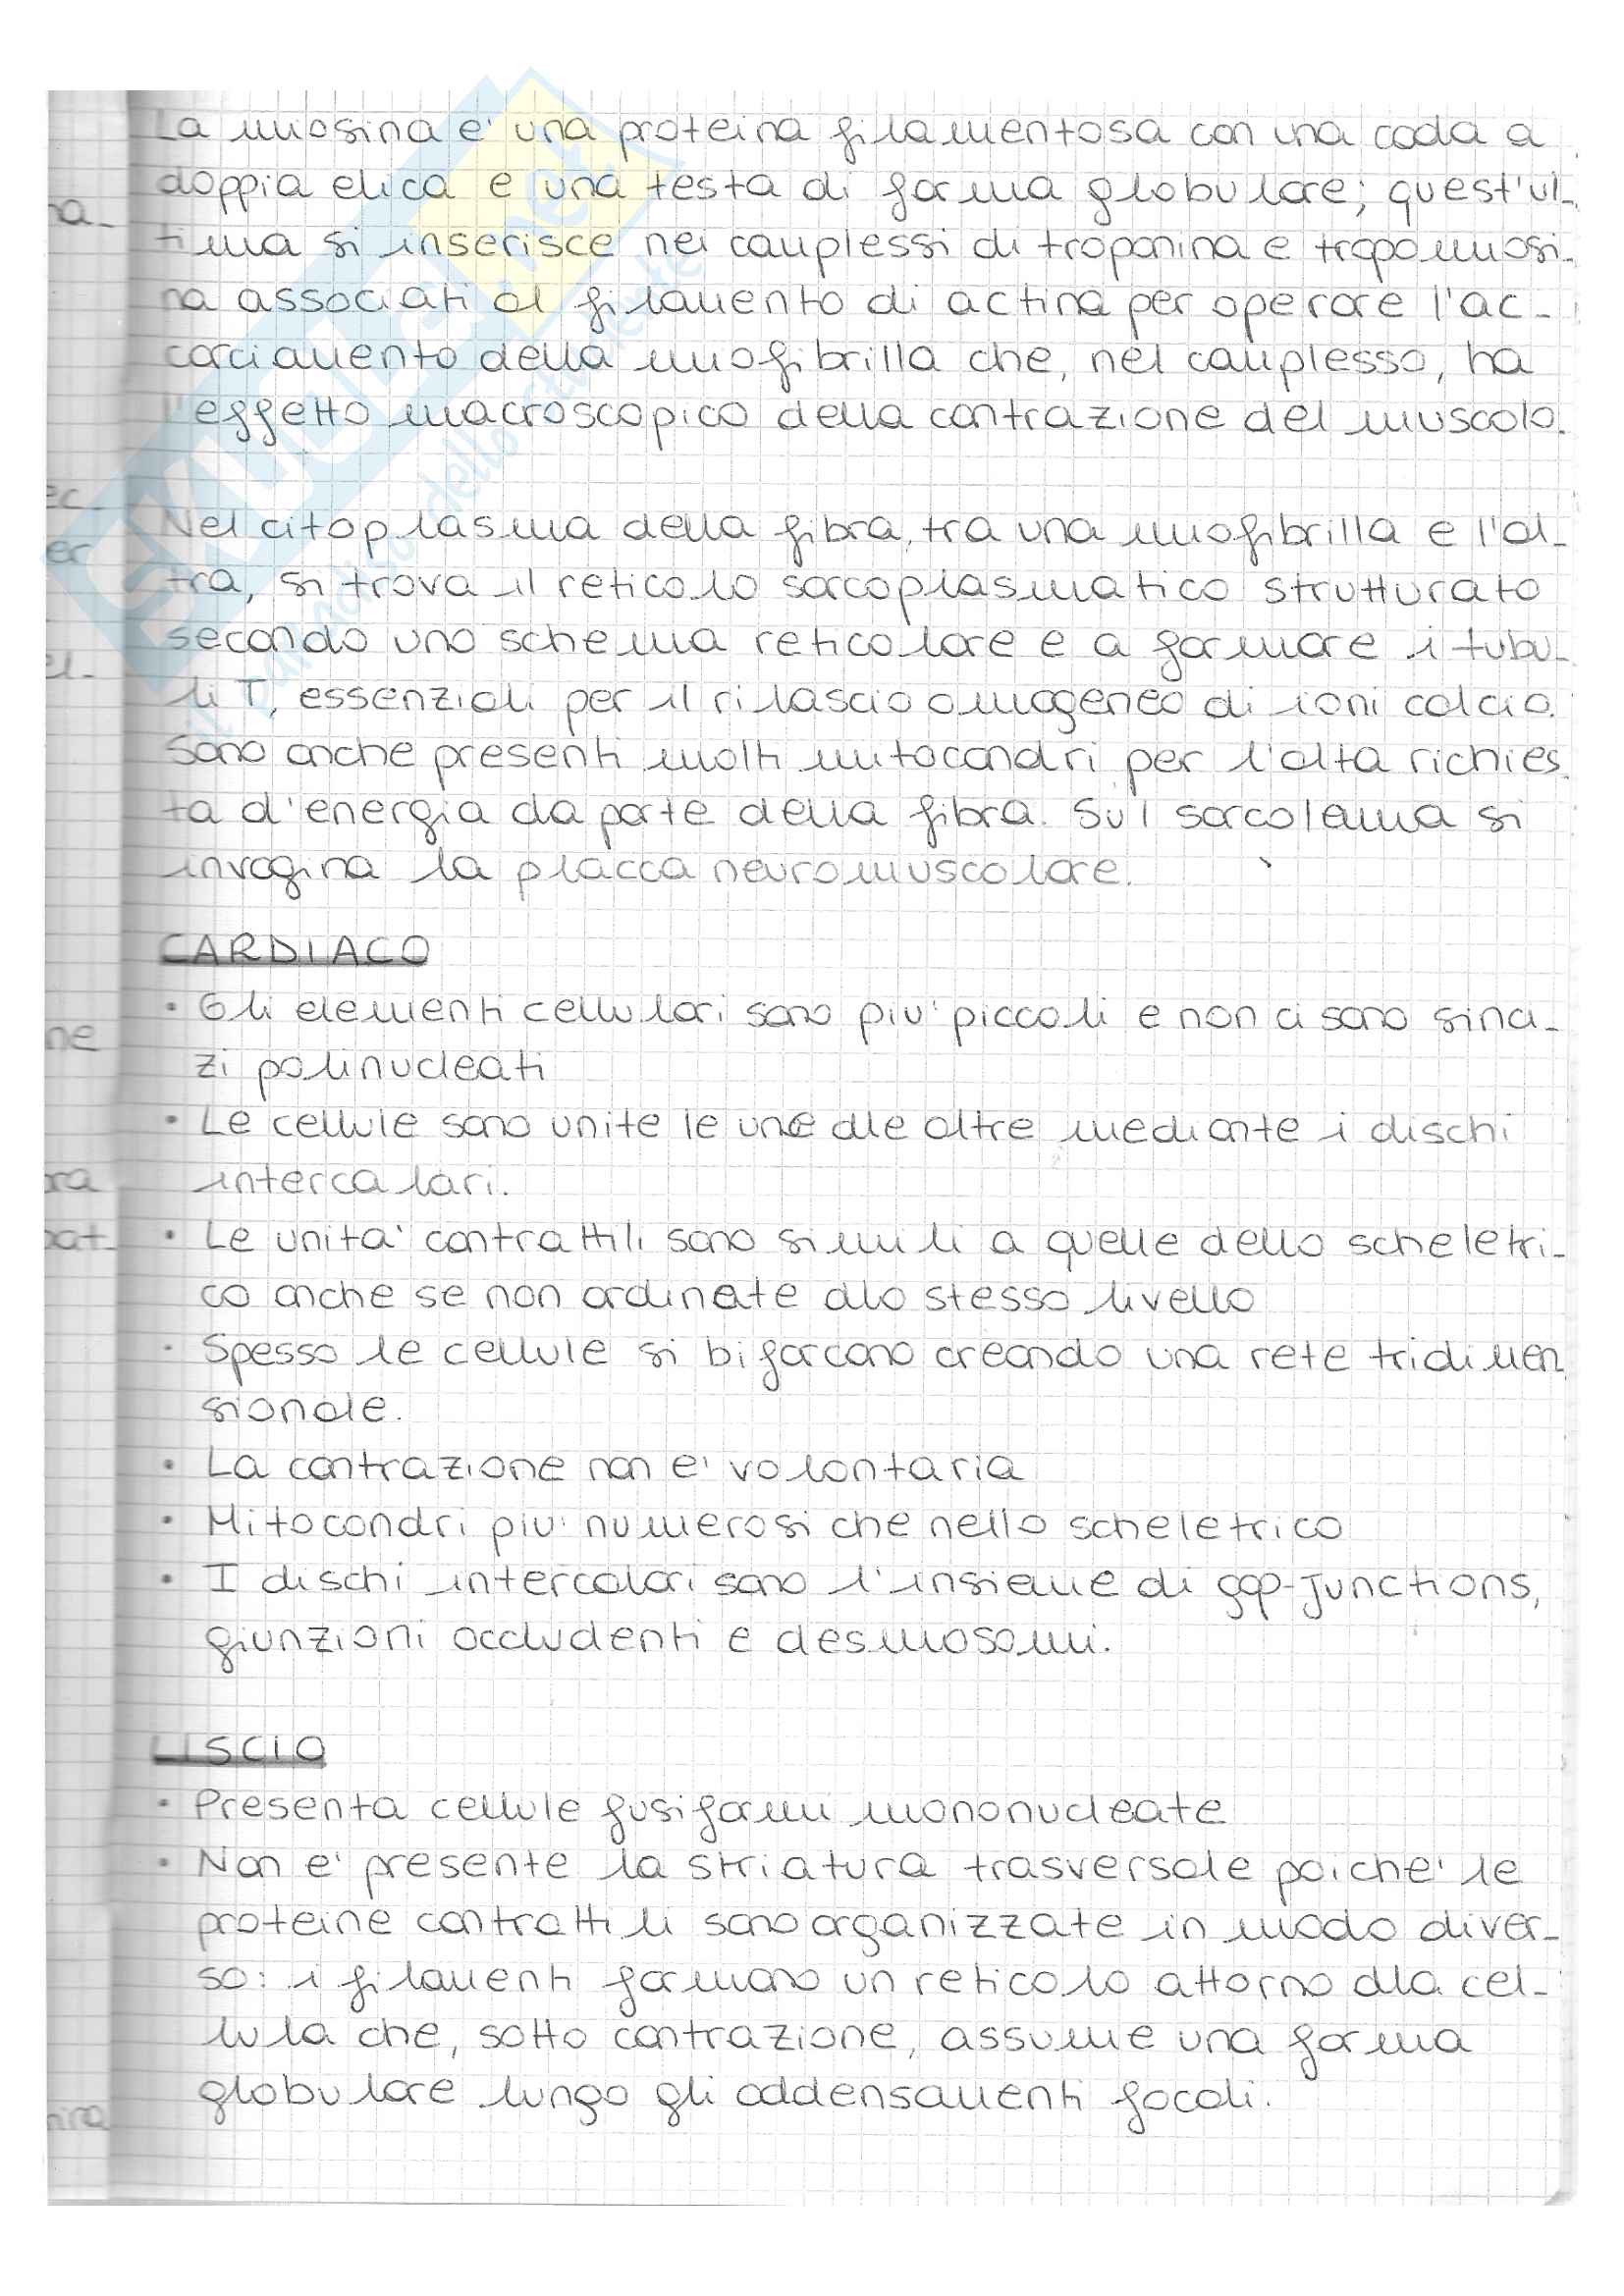 La miosina e' una proteina filamentosa con una coda a
doppia elica e una testa di forma globulare; quest'ul-
tima si inserisce nei complessi di troponina e tropomiosi-
na associati al filamento di actina per operare l'ac-
corciamento della miofibrilla che, nel complesso, ha
l'effetto macroscopico della contrazione del muscolo.
Nel citoplasma della fibra, tra una miofibrilla e l'al-
tra, si trova il reticolo sarcoplasmatico strutturato
secondo uno schema reticolare e a formare i tubu-
li T, essenziali per il rilascio omogeneo di ioni calcio.
Sono anche presenti molti mitocondri per l'alta richies
ta d'energia da parte della fibra. Sul sarcolemma si
invagina la placca neuromuscolare.
CARDIACO
• Gli elementi cellulari sono piu' piccoli e non ci sono sinci-
zi polinucleati
• Le cellule sono unite le une alle altre mediante i dischi
intercalari.
• Le unita' contrattili sono simili a quelle dello scheletri-
co anche se non ordinate allo stesso livello
• Spesso le cellule si biforcano creando una rete tridimen
sionale.
• La contrazione non e' volontaria
• Mitocondri piu' numerosi che nello scheletrico
• I dischi intercalari sono l'insieme di gap-junctions,
giunzioni occludenti e desmosomi.
LISCIO
• Presenta cellule fusiformi mononucleate
• Non e' presente la striatura trasversale poiche' le
proteine contrattili sono organizzate in modo diver-
so: i filamenti formano un reticolo attorno alla cel-
lula che, sotto contrazione, assume una forma
globulare lungo gli addensamenti focali.